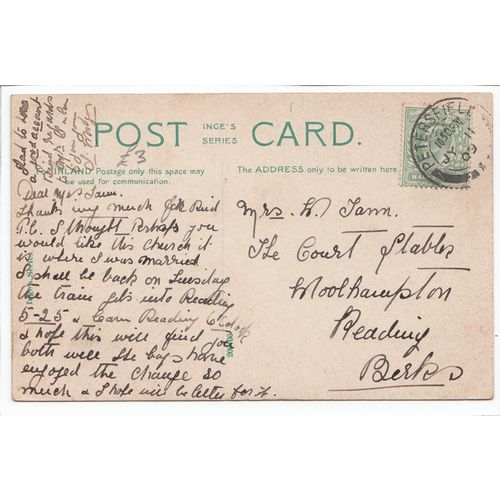 POST CARD.
INGE'S
SERIES
£3
FOR INLAND Postage only this space may
be used for communication.
The ADDRESS only to be written here.
PETERSFIELD
JY
09
Dear Mrs Tann.
Thanks very much for kind
P.C. I thought Perhaps you
would like this church it
is where I was married
I shall be back on Tuesday
the train gets into Reading
5-25 & leave Reading 6 o'clock
I hope this will find you
both well the boys have
enjoyed the change so
much & I hope will be better for it.
Glad to have
a good account
kind regards
Mrs W. Tann.
The Court Stables
Woolhampton
Reading
Berks